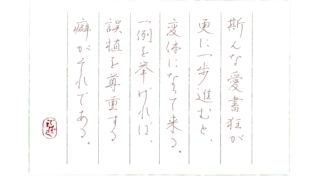 斯んな愛書狂が
更に一歩進むと、
変体になつて来る。
一例を挙げれば、
誤植を尊重する
癖がそれである。